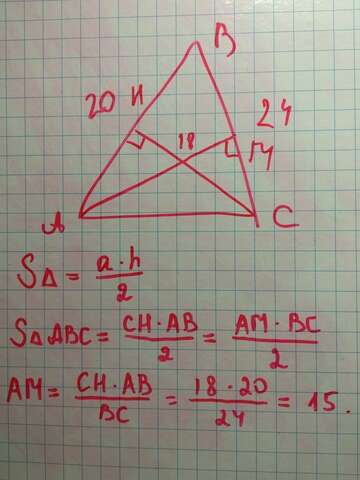 B
20 H
24
18
M
A
C
S△ = a·h / 2
S△ABC = CH·AB / 2 = AM·BC / 2
AM = CH·AB / BC = 18·20 / 24 = 15.